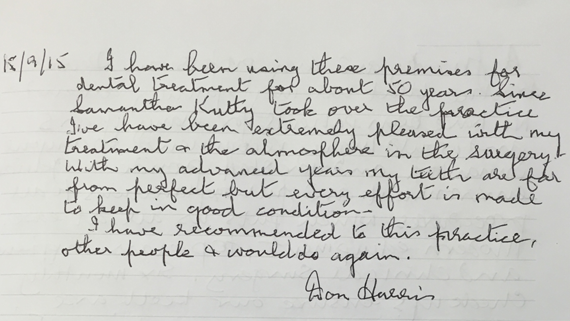 15/9/15 I have been using these premises for
dental treatment for about 50 years. Since
Samantha Kutty took over the practice
I've have been extremely pleased with my
treatment & the atmosphere in the surgery.
With my advanced years my teeth are far
from perfect but every effort is made
to keep in good condition-
I have recommended to this practice,
other people & would do again.
Don Harris